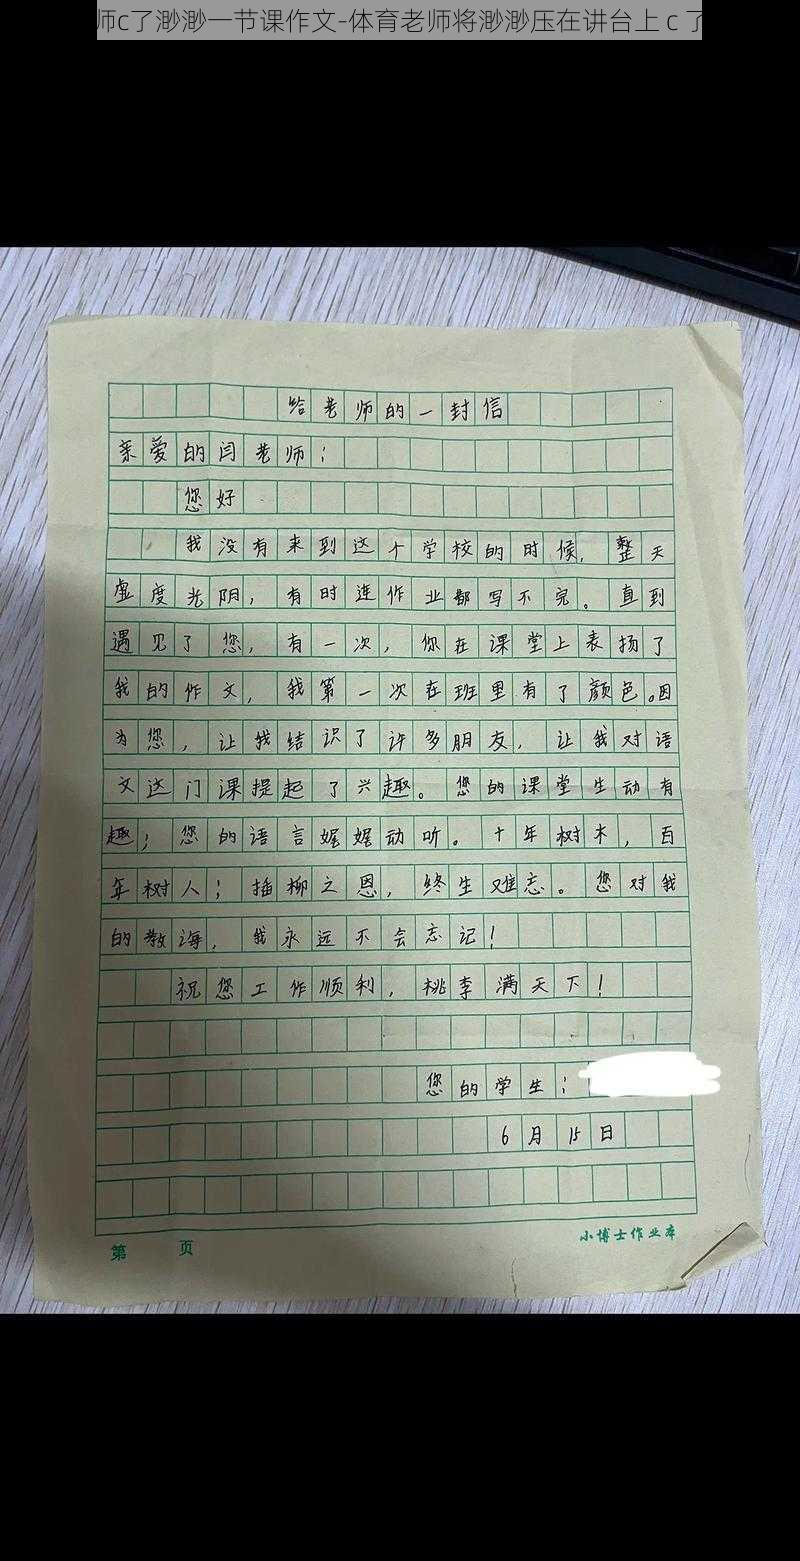 师c了渺渺一节课作文-体育老师将渺渺压在讲台上 c 了
给老师的一封信
亲爱的闫老师：
您好
我没有来到这个学校的时候，整天
虚度光阴，有时连作业都写不完。直到
遇见了您，有一次，你在课堂上表扬了
我的作文，我第一次在班里有了颜色。因
为您，让我结识了许多朋友，让我对语
文这门课提起了兴趣。您的课堂生动有
趣；您的语言娓娓动听。十年树木，百
年树人；插柳之恩，终生难忘。您对我
的教诲，我永远不会忘记！
祝您工作顺利，桃李满天下！
您的学生：
6月15日
第 页
小博士作业本